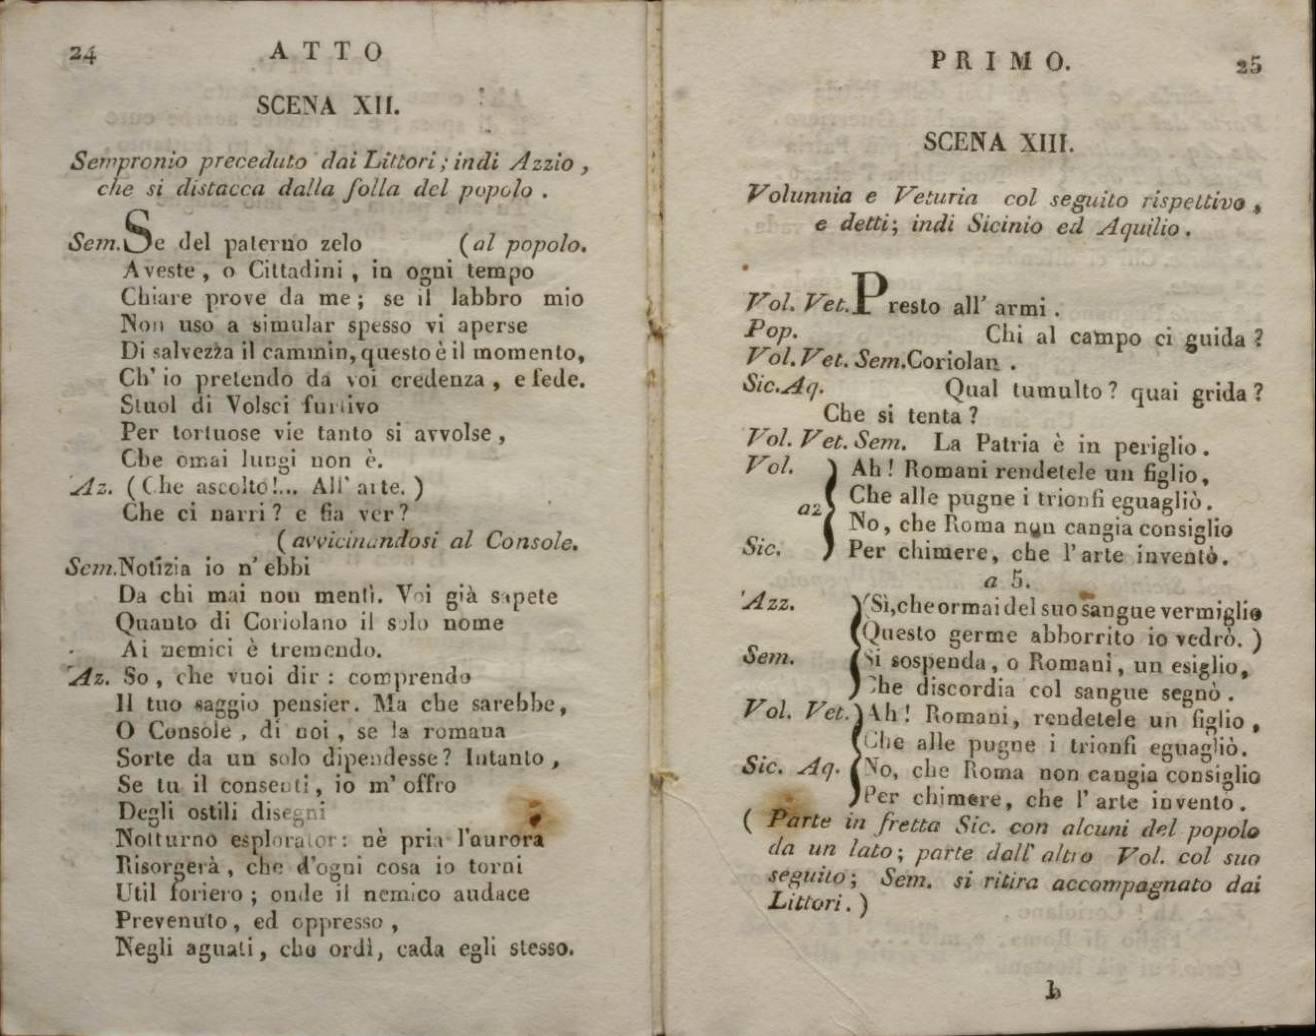 24
ATTO
SCENA XII.
Sempronio preceduto dai Littori; indi Azzio,
che si distacca dalla folla del popolo.
Sem. Se del paterno zelo (al popolo.
Aveste, o Cittadini, in ogni tempo
Chiare prove da me; se il labbro mio
Non uso a simular spesso vi aperse
Di salvezza il cammin, questo è il momento,
Ch' io pretendo da voi credenza, e fede.
Stuol di Volsci furtivo
Per tortuose vie tanto si avvolse,
Che omai lungi non è.
Az. (Che ascolto!... All' arte.)
Che ci narri? e fia ver?
(avvicinandosi al Console.
Sem. Notizia io n' ebbi
Da chi mai non mentì. Voi già sapete
Quanto di Coriolano il solo nome
Ai nemici è tremendo.
Az. So, che vuoi dir: comprendo
Il tuo saggio pensier. Ma che sarebbe,
O Console, di noi, se la romana
Sorte da un solo dipendesse? Intanto,
Se tu il consenti, io m' offro
Degli ostili disegni
Notturno esplorator: nè pria l'aurora
Risorgerà, che d'ogni cosa io torni
Util foriero; onde il nemico audace
Prevenuto, ed oppresso,
Negli aguati, che ordì, cada egli stesso.
PRIMO.
25
SCENA XIII.
Volunnia e Veturia col seguito rispettivo,
e detti; indi Sicinio ed Aquilio.
Vol. Vet. Presto all' armi.
Pop. Chi al campo ci guida?
Vol. Vet. Sem. Coriolan.
Sic. Aq. Qual tumulto? quai grida?
Che si tenta?
Vol. Vet. Sem. La Patria è in periglio.
Vol. Ah! Romani rendetele un figlio,
Che alle pugne i trionfi eguagliò.
a2
No, che Roma non cangia consiglio
Sic. Per chimere, che l' arte inventò.
a 5.
Azz. (Sì, che ormai del suo sangue vermiglio
Questo germe abborrito io vedrò.)
Sem. Si sospenda, o Romani, un esiglio,
Che discordia col sangue segnò.
Vol. Vet. Ah! Romani, rendetele un figlio,
Che alle pugne i trionfi eguagliò.
Sic. Aq. No, che Roma non cangia consiglio
Per chimere, che l' arte inventò.
( Parte in fretta Sic. con alcuni del popolo
da un lato; parte dall' altro Vol. col suo
seguito; Sem. si ritira accompagnato dai
Littori. )
b